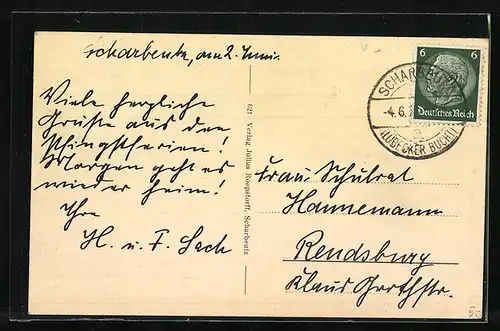 Scharbeutz, am 2. Juni.
Viele herzliche
Grüße aus den
Pfingstferien!
Morgen geht es
wieder heim!
Ihre
H. u. F. Sack
621 Verlag Julius Roepstorff, Scharbeutz
6 6
Deutsches Reich
SCHARBEUTZ
-4.6.
a
(LÜBECKER BUCHT)
Frau Schulrat
Hannemann
Rendsburg
Klaus Grothstr.